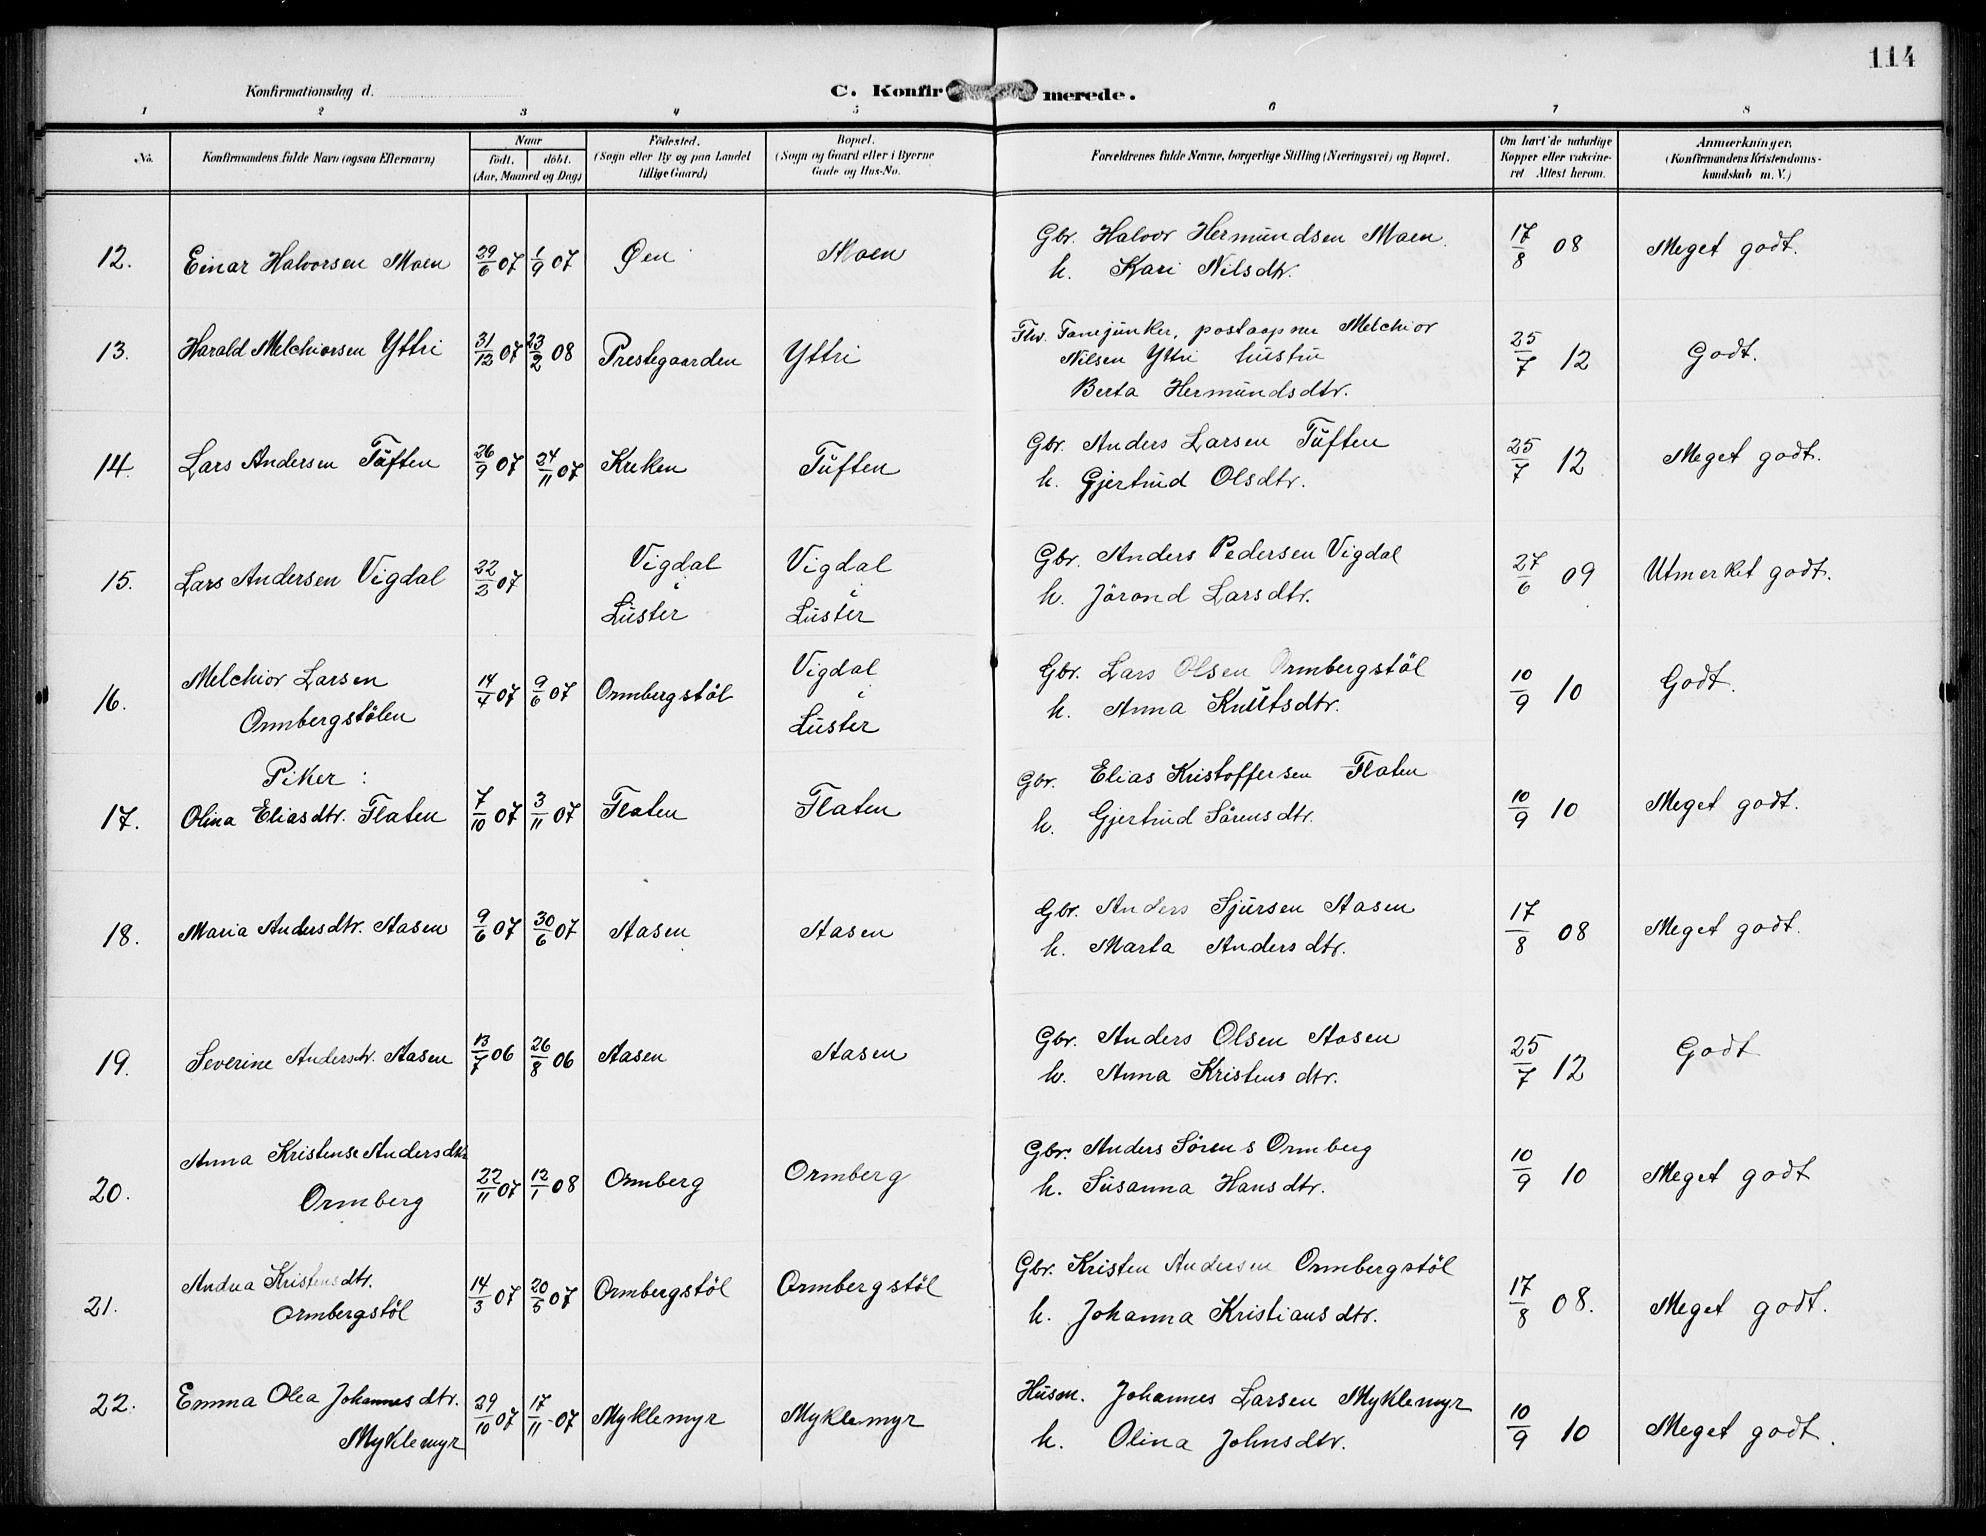 114
Konfirmationsdag d.
C. Konfirmerede.
1 2 3 4 5 6 7 8
No. Konfirmandens fulde Navn (ogsaa Efternavn) Naar født. døbt. (Aar, Maaned og Dag) Fødested. (Sogn eller By og paa Landet tillige Gaard) Bopæl. (Sogn og Gaard eller i Byerne Gade og Hus-No. Forældrenes fulde Navne, borgerlige Stilling (Næringsvei) og Bopæl. Om havt de naturlige Kopper eller vakcineret Attest herom. Anmærkninger, (Konfirmandens Kristendomskundskab m. V.)
12. Einar Halvorsen Moen 29/6 07 1/9 07 Øen Moen Gbr. Halvor Hermundsen Moen 17/8 08 Meget godt.
h. Kari Nilsdtr.
13. Harald Melchiorsen Yttri 31/12 07 23/2 08 Prestegaarden Yttri Fhv. Fanejunker, postaapner Melchior 25/7 12 Godt.
Nilsen Yttri hustru
Berta Hermundsdtr.
14. Lars Andersen Tuften 26/9 07 24/11 07 Kreken Tuften Gbr. Anders Larsen Tuften 25/7 12 Meget godt.
h. Gjertrud Olsdtr.
15. Lars Andersen Vigdal 22/2 07 Vigdal i Luster Vigdal i Luster Gbr. Anders Pedersen Vigdal 27/6 09 Utmerket godt.
h. Jörond Larsdtr.
16. Melchior Larsen 14/4 07 9/6 07 Ormbergstöl Vigdal i Luster Gbr. Lars Olsen Ormbergstöl 10/9 10 Godt.
Ormbergstölen h. Anna Knutsdtr.
Piker:
17. Olina Eliasdtr. Flaten 7/10 07 3/11 07 Flaten Flaten Gbr. Elias Kristoffersen Flaten 10/9 10 Meget godt.
h. Gjertrud Sörensdtr.
18. Maria Andersdtr. Aasen 9/6 07 30/6 07 Aasen Aasen Gbr. Anders Sjursen Aasen 17/8 08 Meget godt.
h. Marta Andersdtr.
19. Severine Andersdtr. Aasen 13/7 06 26/8 06 Aasen Aasen Gbr. Anders Olsen Aasen 25/7 12 Godt
h. Anna Kristensdtr.
20. Anna Kristense Andersdtr 22/11 07 12/1 08 Ormberg Ormberg Gbr. Anders Sörens Ormberg 10/9 10 Meget godt
Ormberg h. Susanna Hansdtr.
21. Andrea Kristensdtr. 14/3 07 20/5 07 Ormbergstöl Ormbergstöl Gbr. Kristen Andersen Ormbergstöl 17/8 08. Meget godt.
Ormbergstöl h. Johanna Kristiansdtr.
22. Emma Olea Johannesdtr. 29/10 07 17/11 07 Myklemyr Myklemyr Husm. Johannes Larsen Myklemyr 10/9 10 Meget godt.
Myklemyr h. Olina Johnsdtr.